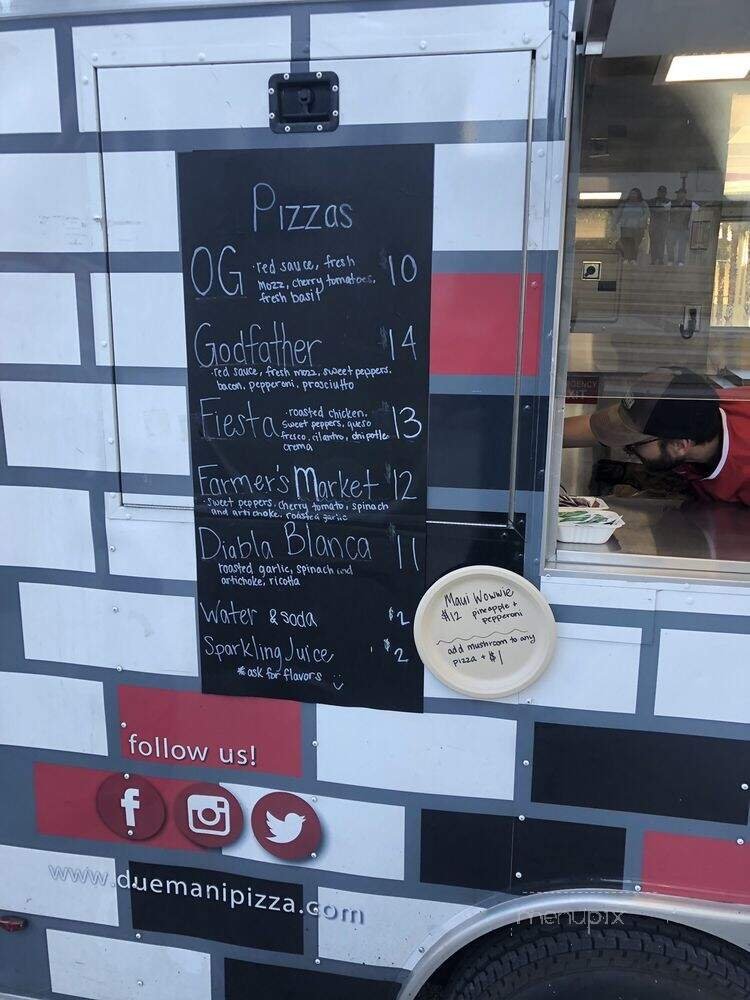 Pizzas
OG ·red sauce, fresh $10
mozz, cherry tomatoes,
fresh basil
Godfather $14
·red sauce, fresh mozz, sweet peppers,
bacon, pepperoni, prosciutto
Fiesta ·roasted chicken, $13
sweet peppers, queso
fresco, cilantro, chipotle
crema
Farmer's Market $12
·sweet peppers, cherry tomato, spinach
and artichoke, roasted garlic
Diabla Blanca $11
roasted garlic, spinach and
artichoke, ricotta
Water & soda $2
Sparkling Juice $2
*ask for flavors
Maui Wowwie
$12 pineapple +
pepperoni
add mushroom to any
pizza + $1
follow us!
www.duemanipizza.com
menupix